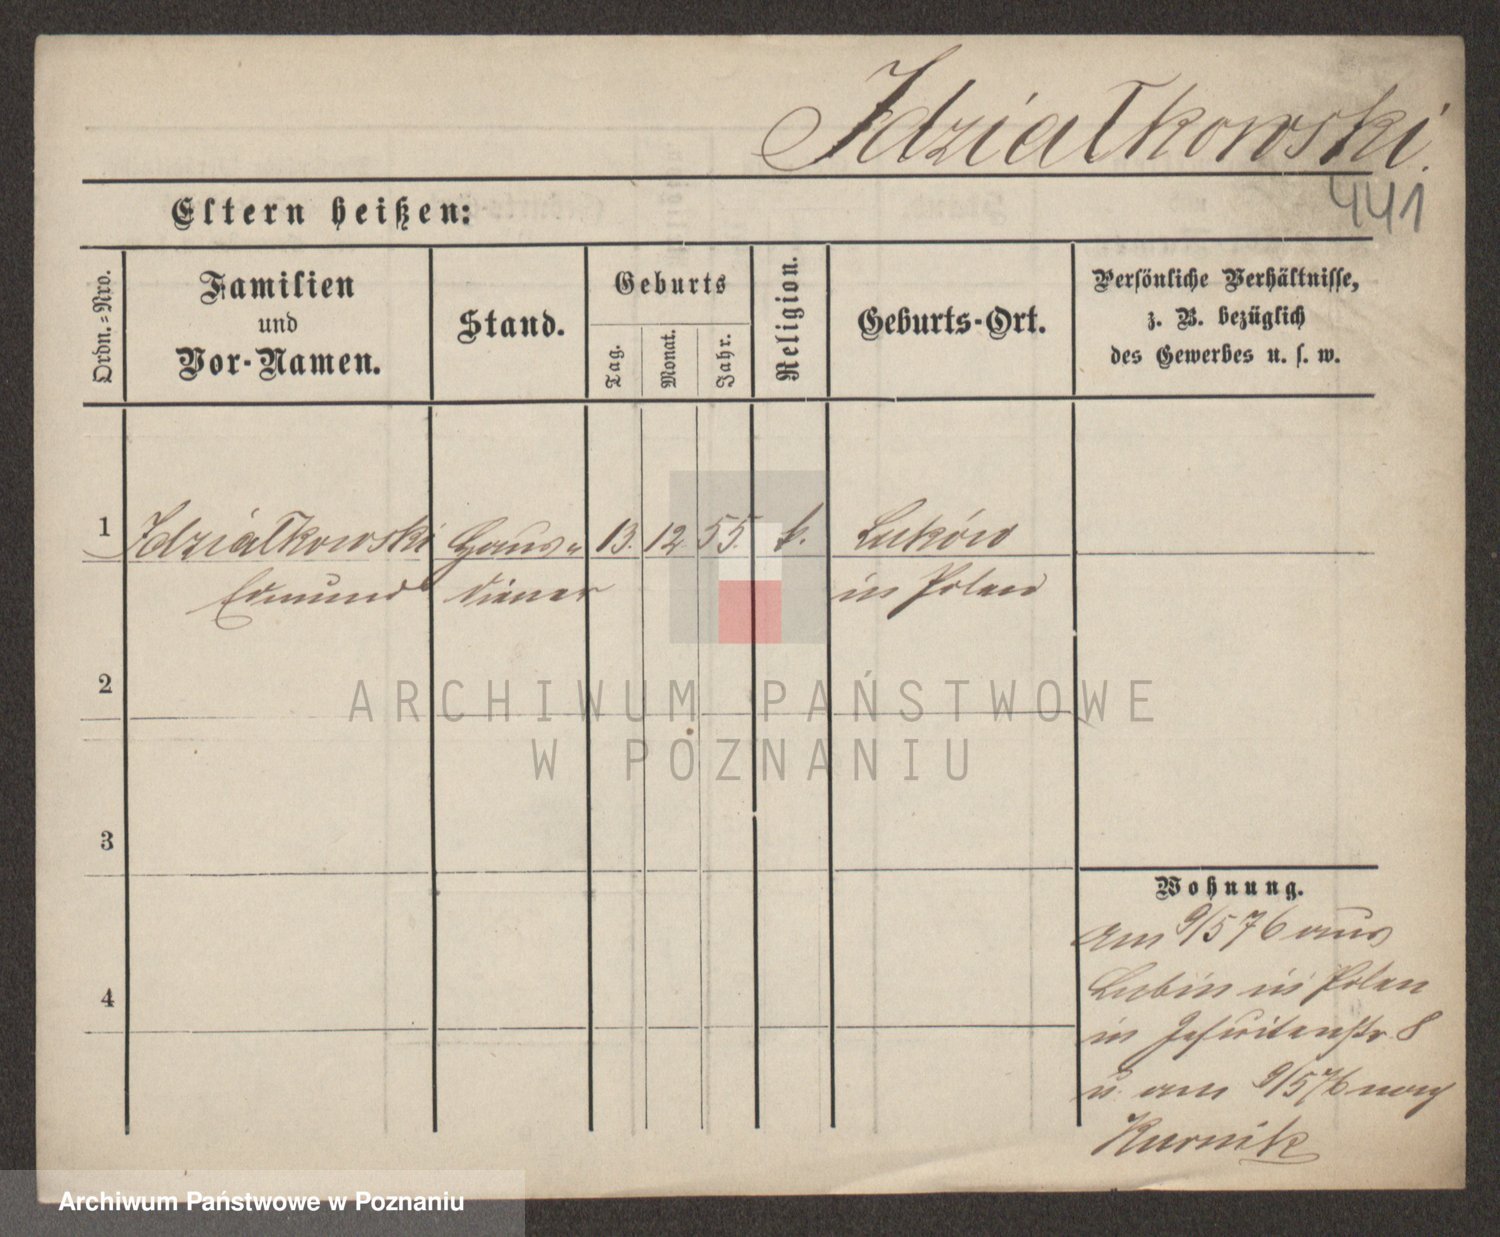 Idziałkowski.
441
Eltern heißen:
Ordn.-Nro.
Familien
und
Vor-Namen.
Stand.
Geburts
Tag.
Monat.
Jahr.
Religion.
Geburts-Ort.
Persönliche Verhältnisse,
z. B. bezüglich
des Gewerbes u. s. w.
1 Idziałkowski Haus- 13. 12. 55. k. Luków
Edmund diener in Polen
2
ARCHIWUM PAŃSTWOWE
W POZNANIU
3
Wohnung.
am 9/5 76 aus
Lubin in Polen
in Jesuitenstr. 8
u. am 9/5 76 nach
Kurnik
4
Archiwum Państwowe w Poznaniu